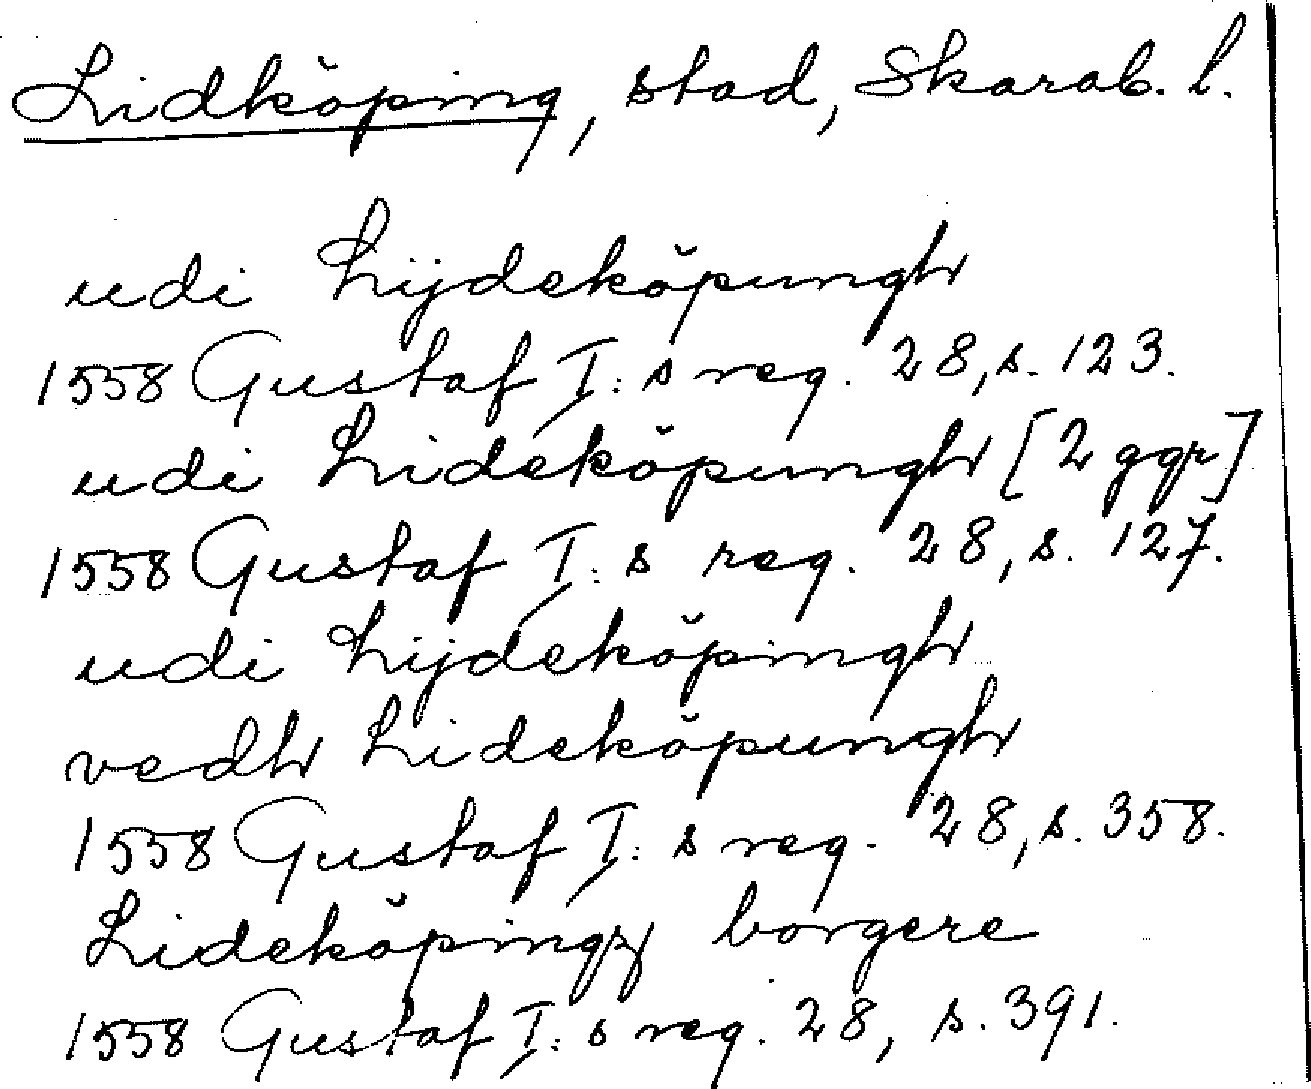 Lidköping, stad, Skarab. l.
udi Lijdeköpungh
1558 Gustaf I:s reg. 28, s. 123.
udi Lideköpungh [2 ggr]
1558 Gustaf I:s reg. 28, s. 127.
udi Lijdeköpingh
vedh Lideköpungh
1558 Gustaf I:s reg. 28, s. 358.
Lideköpingz borgere
1558 Gustaf I:s reg. 28, s. 391.